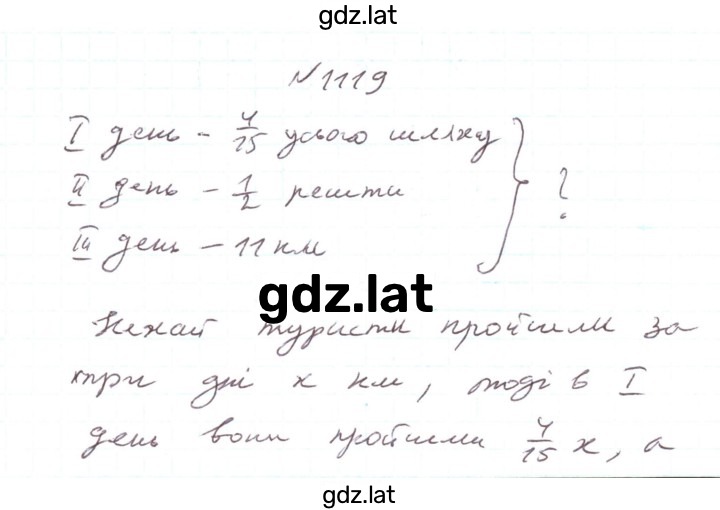 gdz.lat
№1119
I день - 4/15 усього шляху
II день - 1/2 решти
III день - 11 км
?
gdz.lat
Нехай туристи пройшли за
три дні x км, тоді в I
день вони пройшли 4/15 x, а
gdz.lat